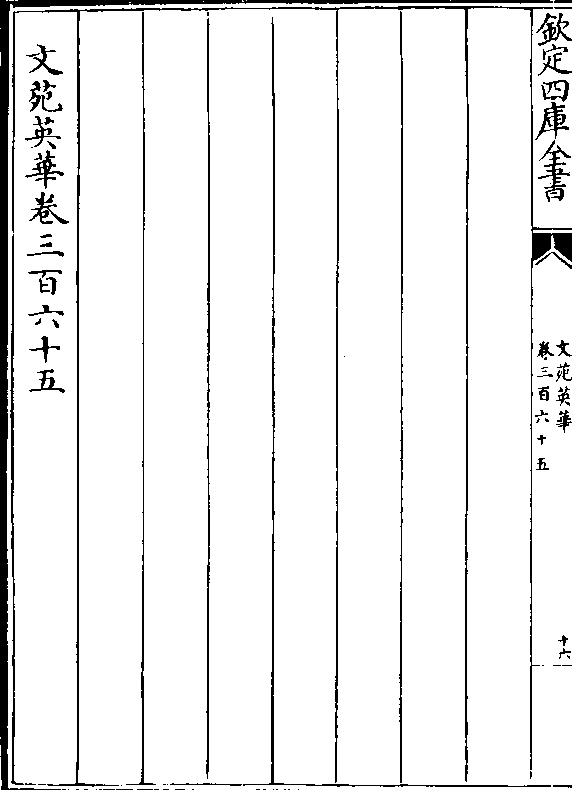 欽定四庫全書
文苑英華
卷三百六十五
十六
文苑英華卷三百六十五